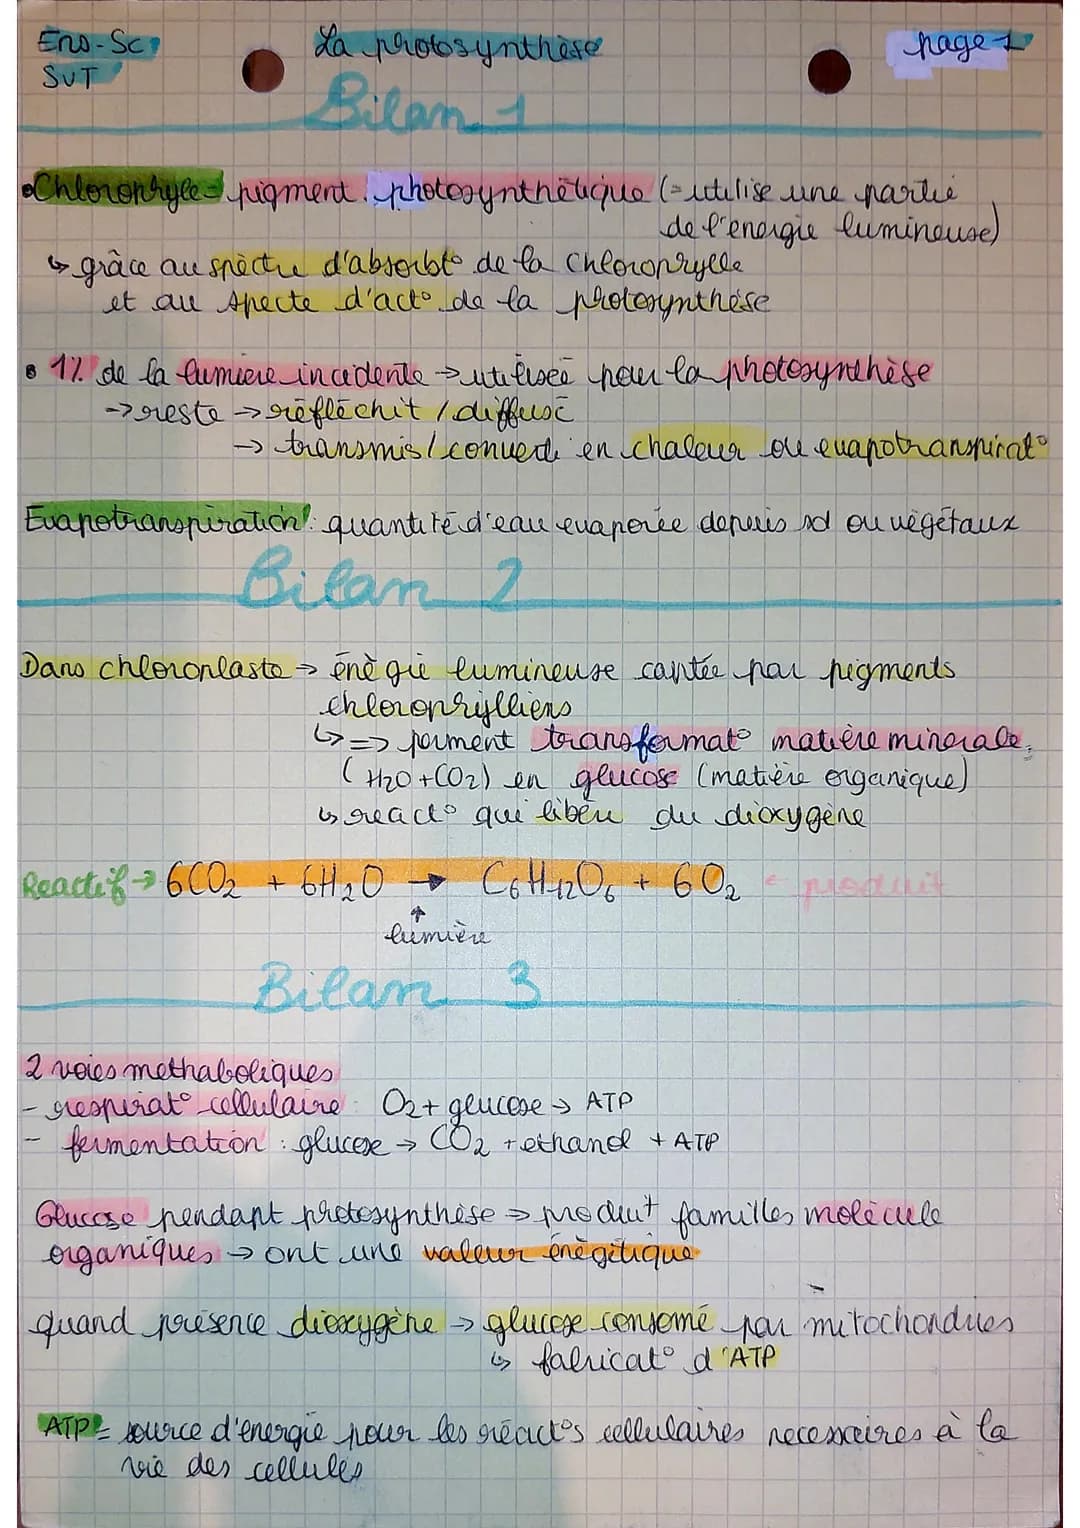 Ens-Sc
La photosynthèse
page 1
SVT
Bilan 1
•Chlorophyle= pigment photosynthétique (=utilise une partie
de l'energie lumineuse)
↳ grâce au spèctre d'absorbt° de la chlorophylle
et au specte d'act° de la photosynthèse
• 1% de la lumière incidente → utilisée pour la photosynthèse
→ reste → réfléchit / diffusé
→ transmis / converti en chaleur ou evapotranspirat°
Evapotranspiration : quantité d'eau evaporée depuis sol ou végétaux
Bilan 2
Dans chloroplaste → énègie lumineuse captée par pigments
chlorophylliens
↳ => perment transformat° matière minerale
(H2O + CO2) en glucose (matière organique)
↳ react° qui libère du dioxygène
Reactif → 6CO2 + 6H2O → C6H12O6 + 6O2 ← produit
↑
lumière
Bilan 3
2 voies methaboliques
- respirat° cellulaire : O2 + glucose → ATP
- fermentation : glucose → CO2 + ethanol + ATP
Glucose pendant photosynthèse → produit familles molécule
organiques → ont une valeur énègitique
quand présence dioxygène → glucose consomé par mitochondries
↳ fabricat° d'ATP
ATP = source d'energie pour les réact°s cellulaires necessaires à la
vie des cellules